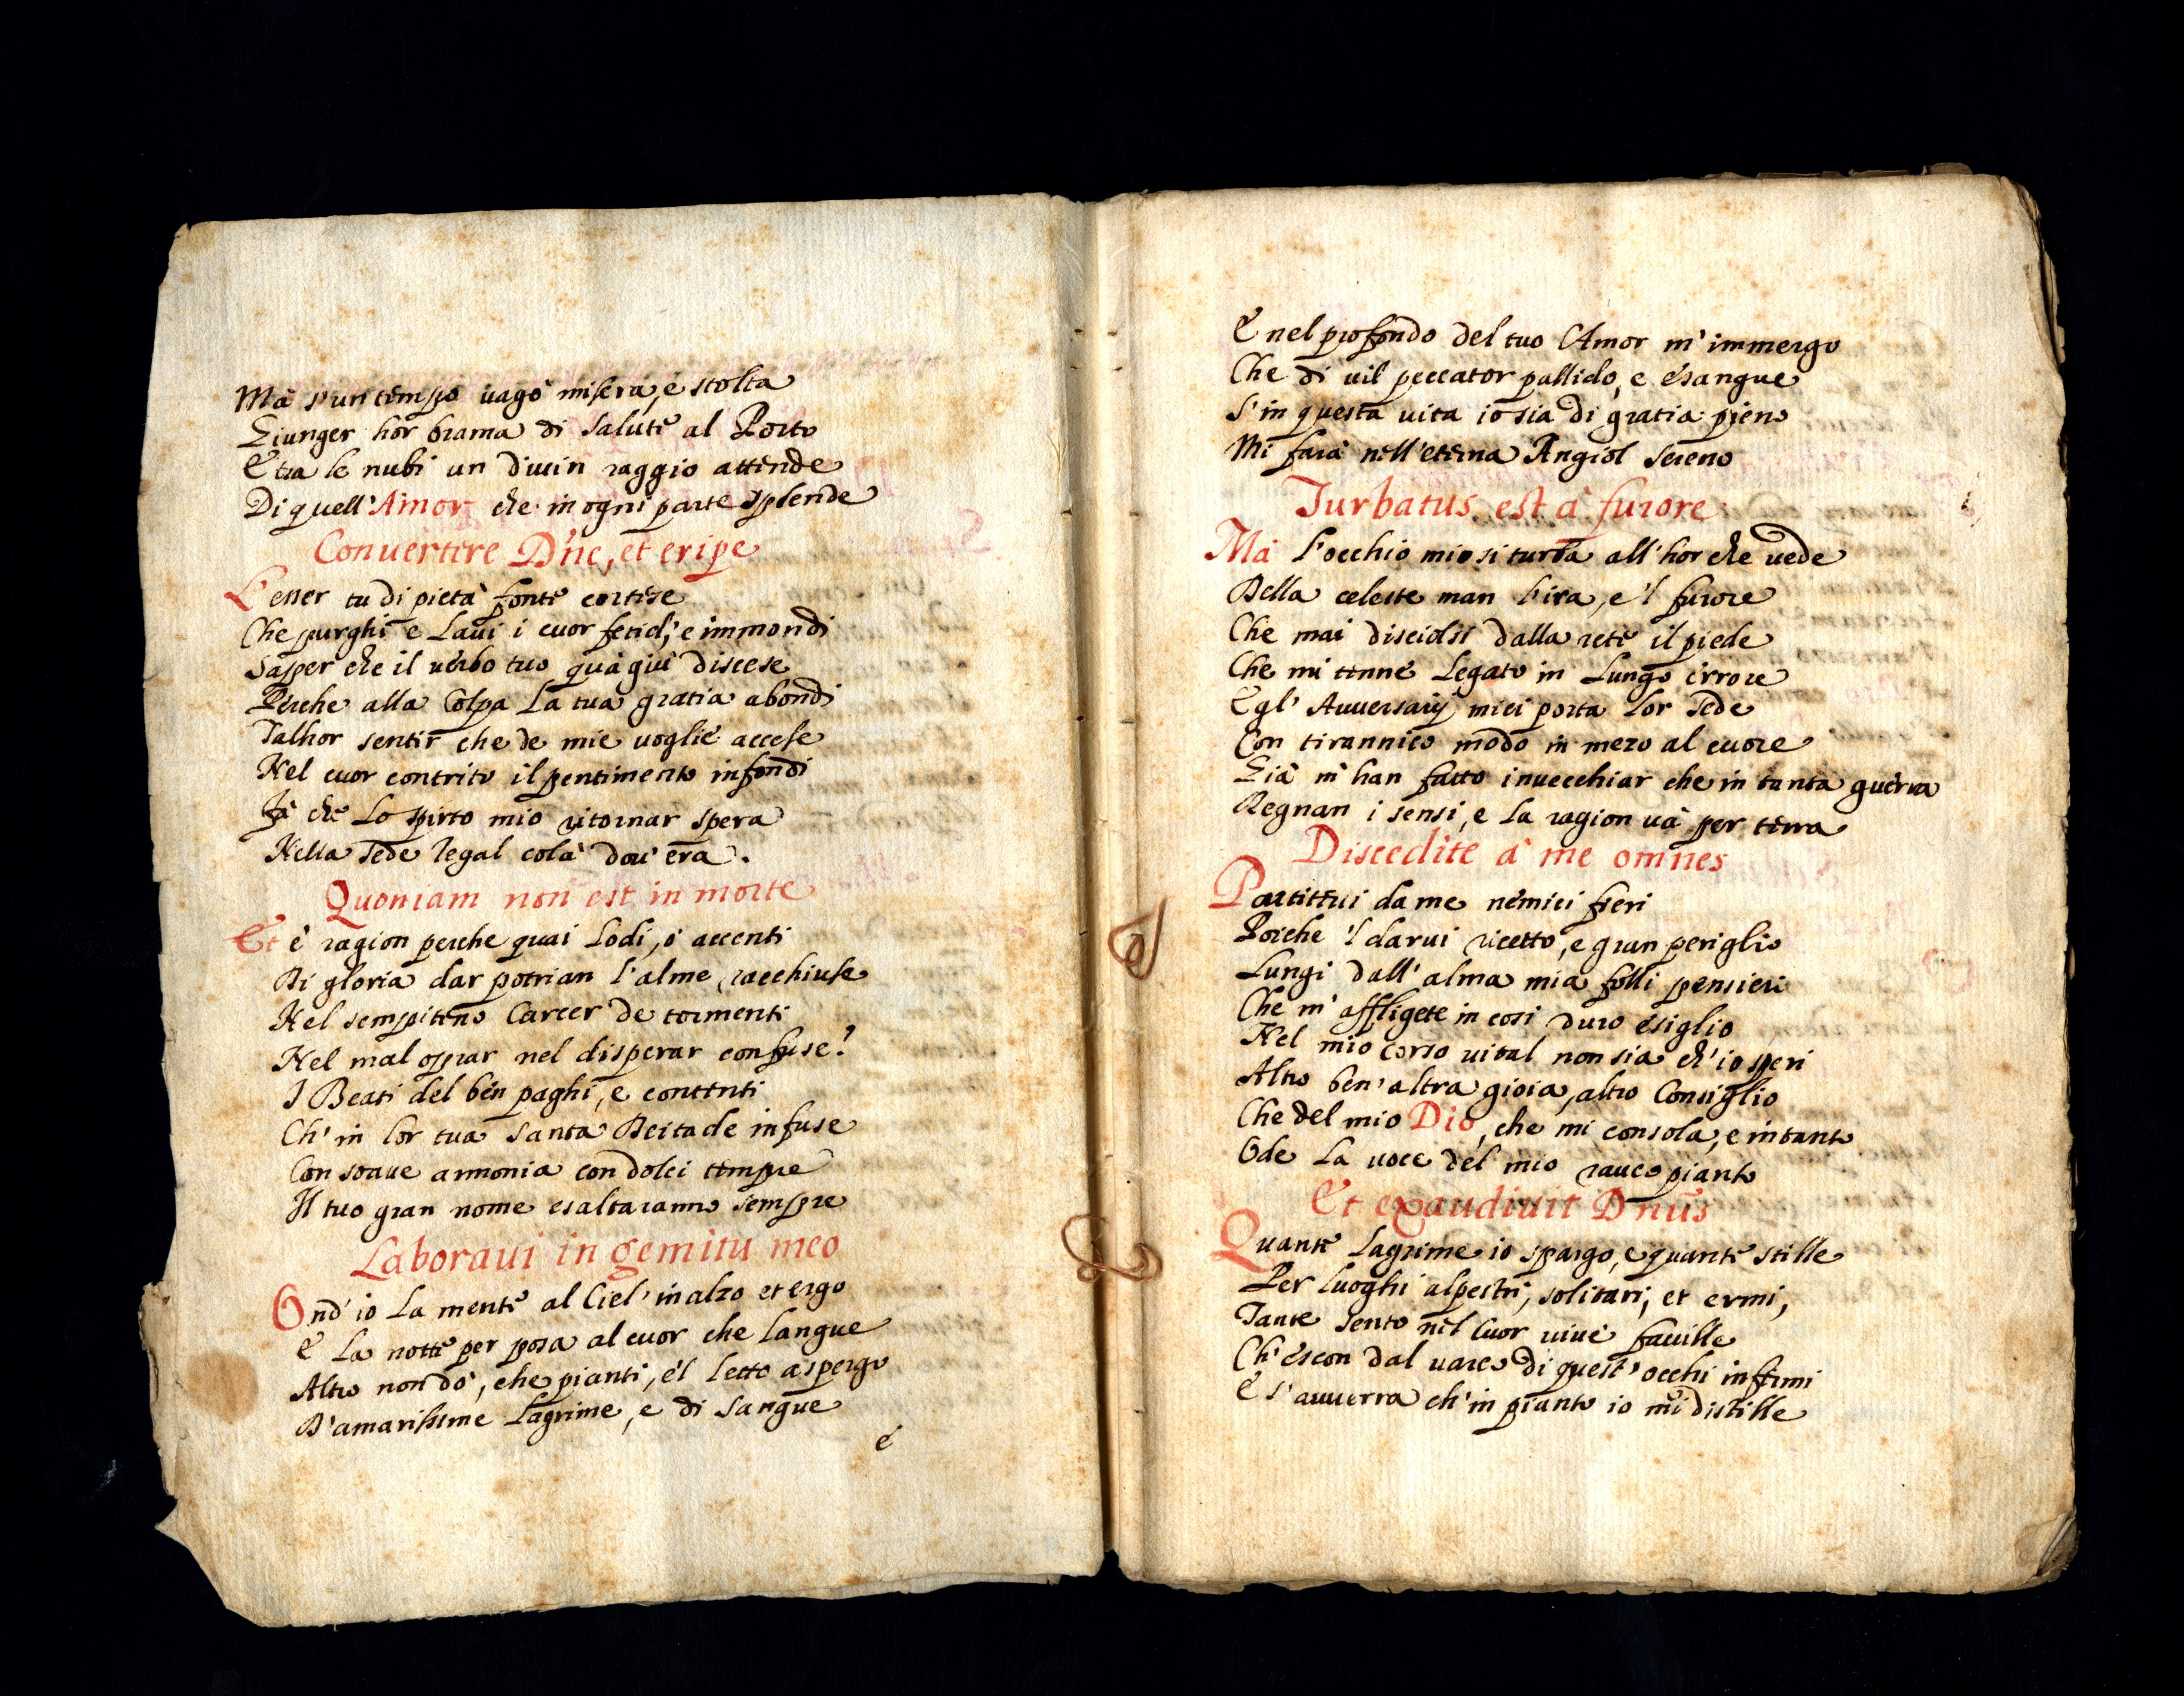 Mà s'un tempo uagò misera, e stolta
Giunger hor brama di salute al Porto
E tra le nubi un diuin raggio attende
Di quell'Amor che in ogni parte splende
Conuertere Dn̄e, et eripe
L'esser tu di pietà fonte cortese
Che purghi e laui i cuor fetidi, e immondi
Saper che il uerbo tuo quà giù discese
Perche alla Colpa la tua gratia abondi
Talhor sentir che de mie uoglie accese
Nel cuor contrito il pentimento infondi
Fà che lo spirto mio ritornar spera
Nella Sede Regal colà dou'era.
Quoniam non est in morte
Et è ragion perche quai lodi, ò accenti
Di gloria dar potrian l'alme racchiuse
Nel sempiterno Carcer de tormenti
Nel mal oprar nel disperar confuse?
I Beati del ben paghi, e contenti
Ch'in lor tua Santa Deitade infuse
Con soaue armonia con dolci tempre
Il tuo gran nome esaltaranno sempre
Laboraui in gemitu meo
Ond'io la mente al Ciel'inalzo et ergo
E la notte per posa al cuor che langue
Altro non dò, che pianti, e'l letto aspergo
D'amarissime lagrime, e di sangue
E
E nel profondo del tuo Amor m'immergo
Che di uil peccator pallido, e esangue
S'in questa uita io sia di gratia pieno
Mi farà nell'eterna Angiol sereno
Turbatus est à furore
Mà l'occhio mio si turba all'hor che uede
Della celeste man l'ira, e'l furore
Che mai disciolsi dalla rete il piede
Che mi tenne legato in lungo errore
E gl'Auuersarij miei porta lor sede
Con tirannico modo in mezo al cuore
Già m'han fatto inuecchiar che in tanta guerra
Regnan i sensi, e la ragion uà per terra
Discedite à me omnes
Partiteui da me nemici fieri
Poiche 'l darui ricetto, e gran periglio
Lungi dall'alma mia folli pensieri
Che m'affligete in cosi duro esiglio
Nel mio corso uital non sia ch'io speri
Altro ben'altra gioia, altro Consiglio
Che del mio Dio, che mi consola, e intanto
Ode la uoce del mio rauco pianto
Et exaudiuit Dn̄us
Quante lagrime io spargo, e quante stille
Per luoghi alpestri, solitari, et ermi,
Tante sento nel Cuor uiue fauille
Ch'escon dal uarco di quest'occhi infermi
E s'auuerra ch'in pianto io mi distille